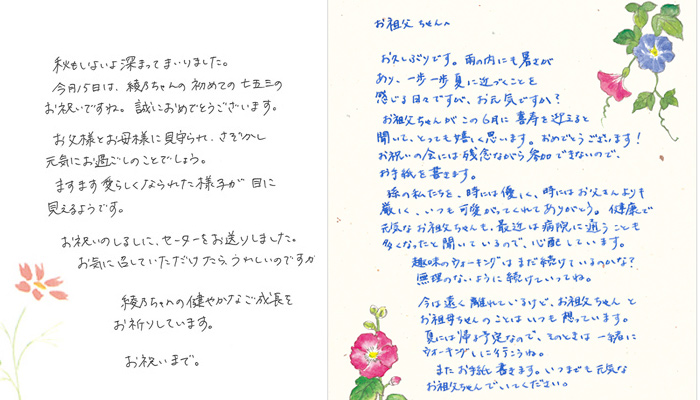 秋もいよいよ深まってまいりました。
今月15日は、綾乃ちゃんの初めての七五三の
お祝いですね。誠におめでとうございます。
お父様とお母様に見守られ、さぞかし
元気にお過ごしのことでしょう。
ますます愛らしくなられた様子が目に
見えるようです。
お祝いのしるしに、セーターをお送りしました。
お気に召していただけたら、うれしいのですが
綾乃ちゃんの健やかなご成長を
お祈りしています。
お祝いまで。
お祖父ちゃんへ
お久しぶりです。雨の内にも暑さが
あり、一歩一歩夏に近づくことを
感じる日々ですが、お元気ですか？
お祖父ちゃんがこの6月に喜寿を迎えると
聞いて、とっても嬉しく思います。おめでとうございます！
お祝いの会には残念ながら参加できないので、
お手紙を書きます。
孫の私たちを、時には優しく、時にはお父さんよりも
厳しく、いつも可愛がってくれてありがとう。健康で
元気なお祖父ちゃんも、最近は病院に通うことも
多くなったと聞いているので、心配しています。
趣味のウォーキングはまだ続けているのかな？
無理のないように続けていってね。
今は遠く離れているけど、お祖父ちゃんと
お祖母ちゃんのことはいつも想っています。
夏には帰る予定なので、そのときは一緒に
ウォーキングしに行こうね。
またお手紙書きます。いつまでも元気な
お祖父ちゃんでいてください。